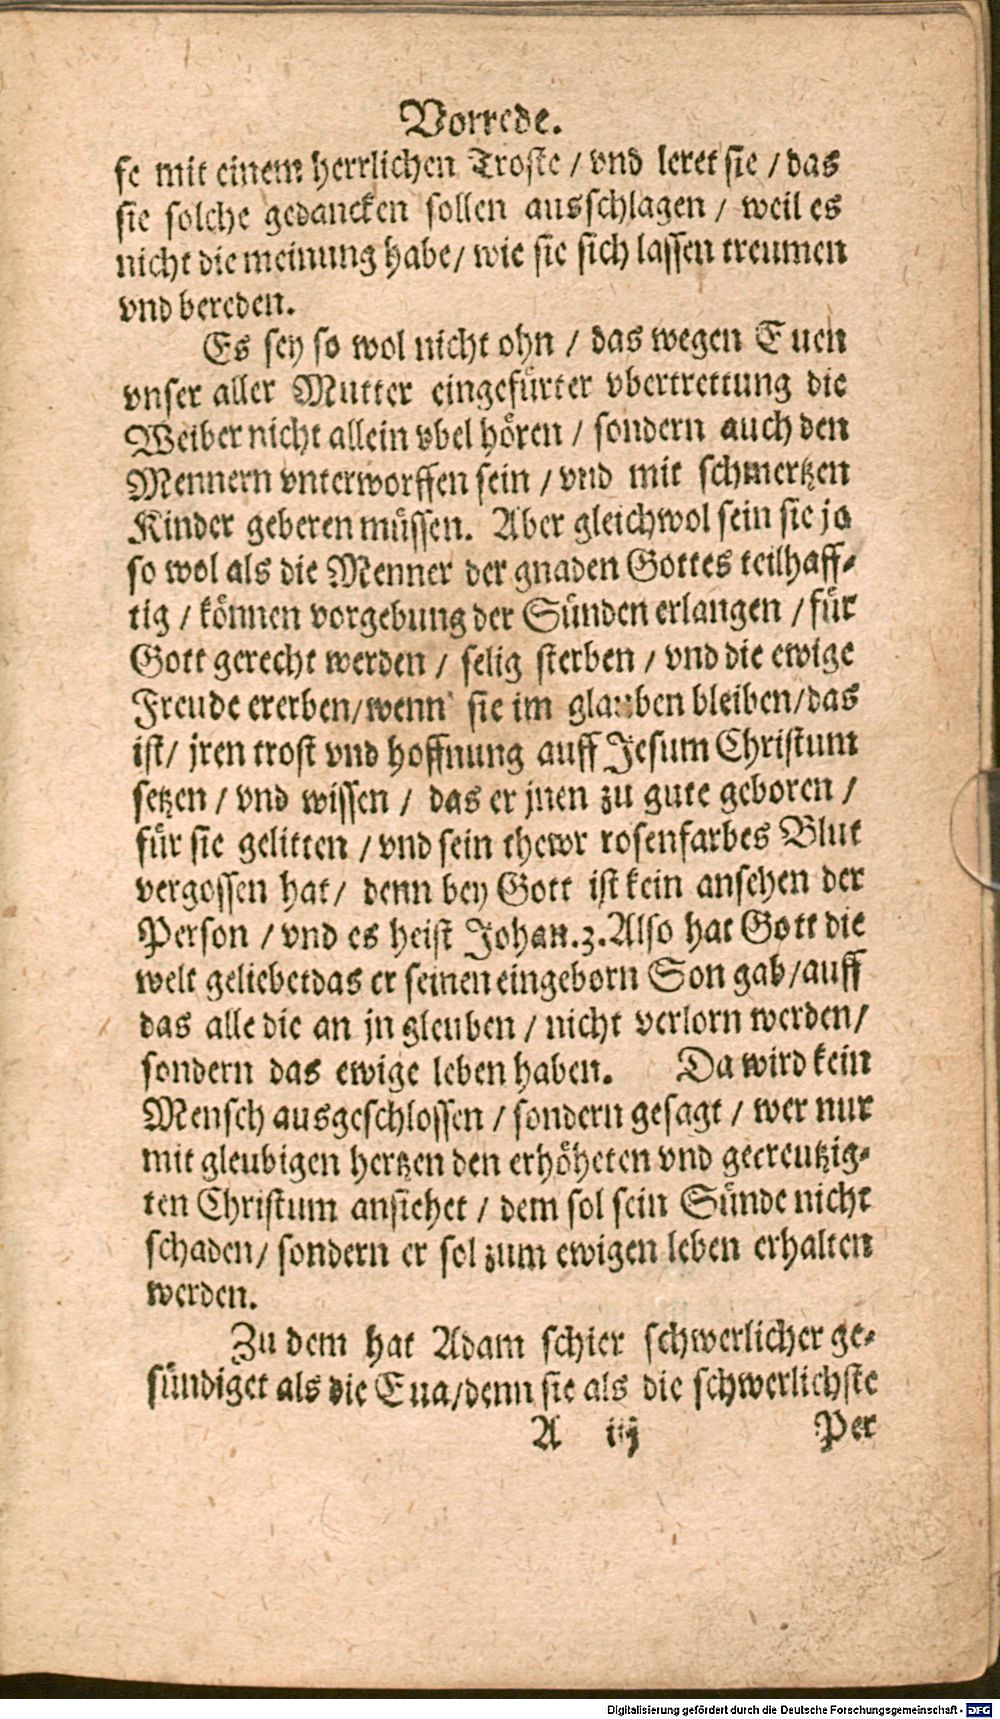 Vorrede.
fe mit einem herrlichen Troste / vnd leret sie / das
sie solche gedancken sollen ausschlagen / weil es
nicht die meinung habe / wie sie sich lassen treumen
vnd bereden.
Es sey so wol nicht ohn / das wegen Euen
vnser aller Mutter eingefürter vbertrettung die
Weiber nicht allein vbel hören / sondern auch den
Mennern vnterworffen sein / vnd mit schmertzen
Kinder geberen müssen. Aber gleichwol sein sie ja
so wol als die Menner der gnaden Gottes teilhaff-
tig / können vorgebung der Sünden erlangen / für
Gott gerecht werden / selig sterben / vnd die ewige
Freude ererben / wenn sie im glauben bleiben / das
ist / jren trost vnd hoffnung auff Jesum Christum
setzen / vnd wissen / das er jnen zu gute geboren /
für sie gelitten / vnd sein thewr rosenfarbes Blut
vergossen hat / denn bey Gott ist kein ansehen der
Person / vnd es heist Johan.3. Also hat Gott die
welt geliebet das er seinen eingeborn Son gab / auff
das alle die an jn gleuben / nicht verlorn werden /
sondern das ewige leben haben. Da wird kein
Mensch ausgeschlossen / sondern gesagt / wer nur
mit gleubigen hertzen den erhöheten vnd gecreutzig-
ten Christum ansiehet / dem sol sein Sünde nicht
schaden / sondern er sol zum ewigen leben erhalten
werden.
Zu dem hat Adam schier schwerlicher ge-
sündiget als die Eua / denn sie als die schwerlichste
A iij Per
Digitalisierung gefördert durch die Deutsche Forschungsgemeinschaft - DFG